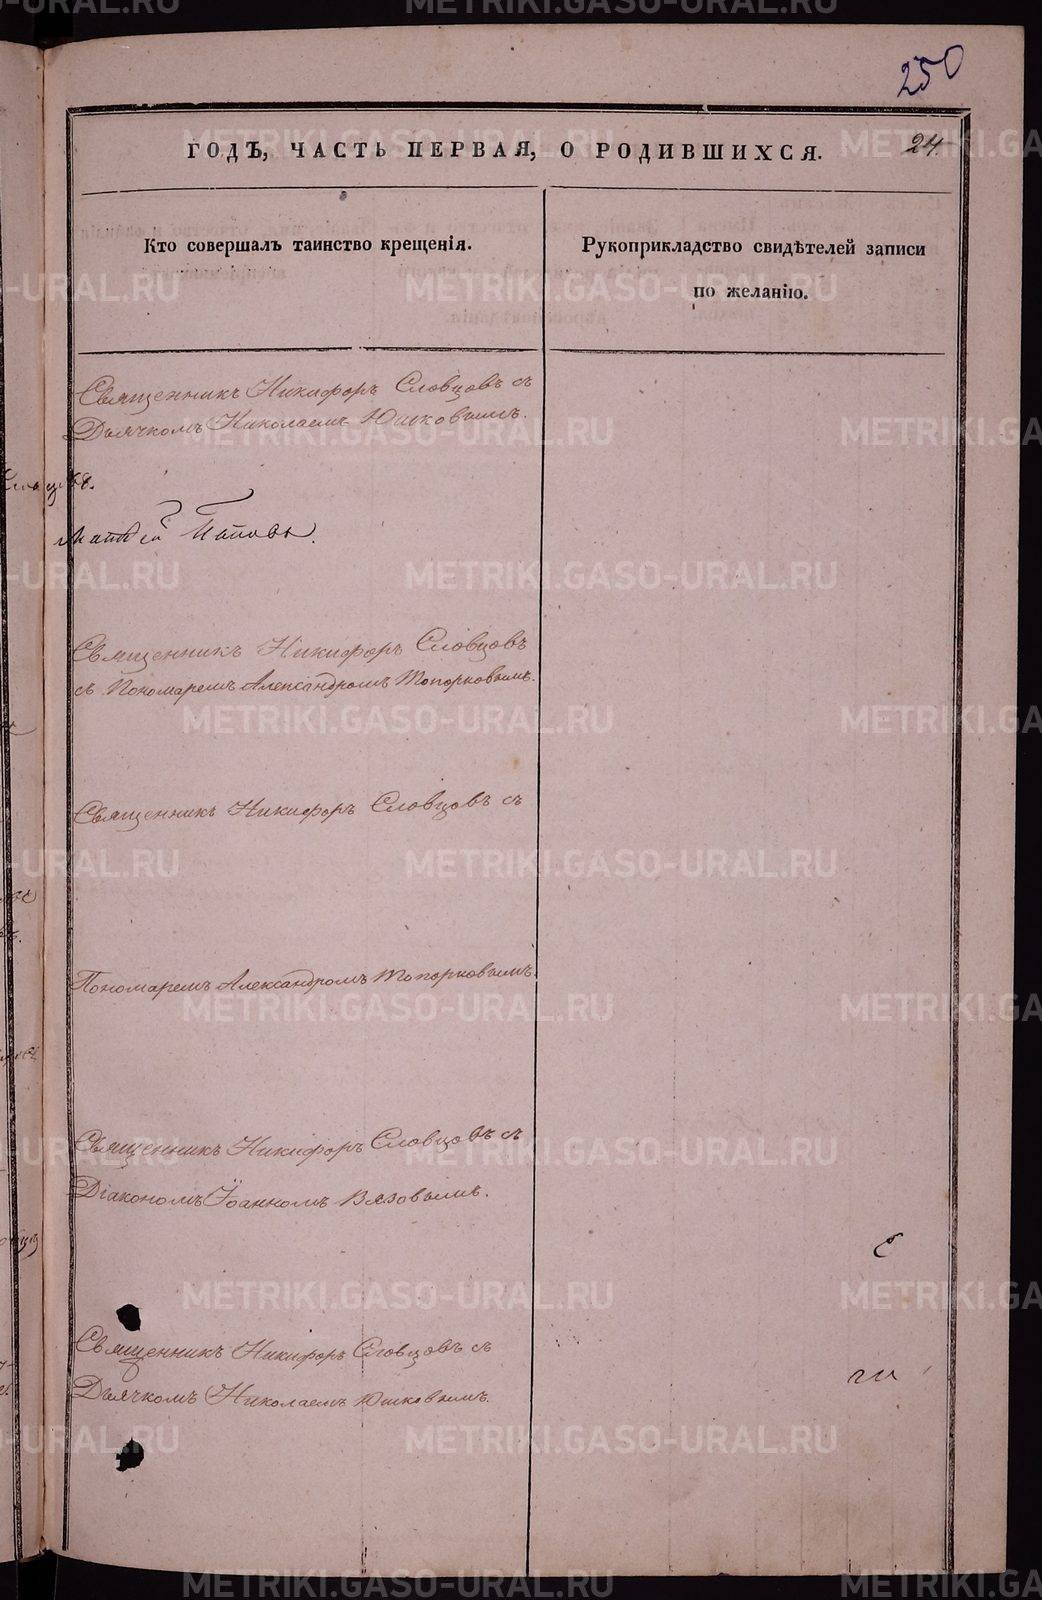 250
24.
ГОДЪ, ЧАСТЬ ПЕРВАЯ, О РОДИВШИХСЯ.
Кто совершалъ таинство крещенія.
Рукоприкладство свидѣтелей записи
по желанію.
Священникъ Никифоръ Словцовъ съ
Дьячкомъ Николаемъ Юшковымъ.
Матѳей Поповъ.
Священникъ Никифоръ Словцовъ
съ Пономаремъ Александромъ Топорковымъ.
Священникъ Никифоръ Словцовъ съ
Пономаремъ Александромъ Топорковымъ.
Священникъ Никифоръ Словцовъ съ
Діакономъ Іоанномъ Вязовымъ.
Священникъ Никифоръ Словцовъ съ
Дьячкомъ Николаемъ Юшковымъ.
METRIKI.GASO-URAL.RU